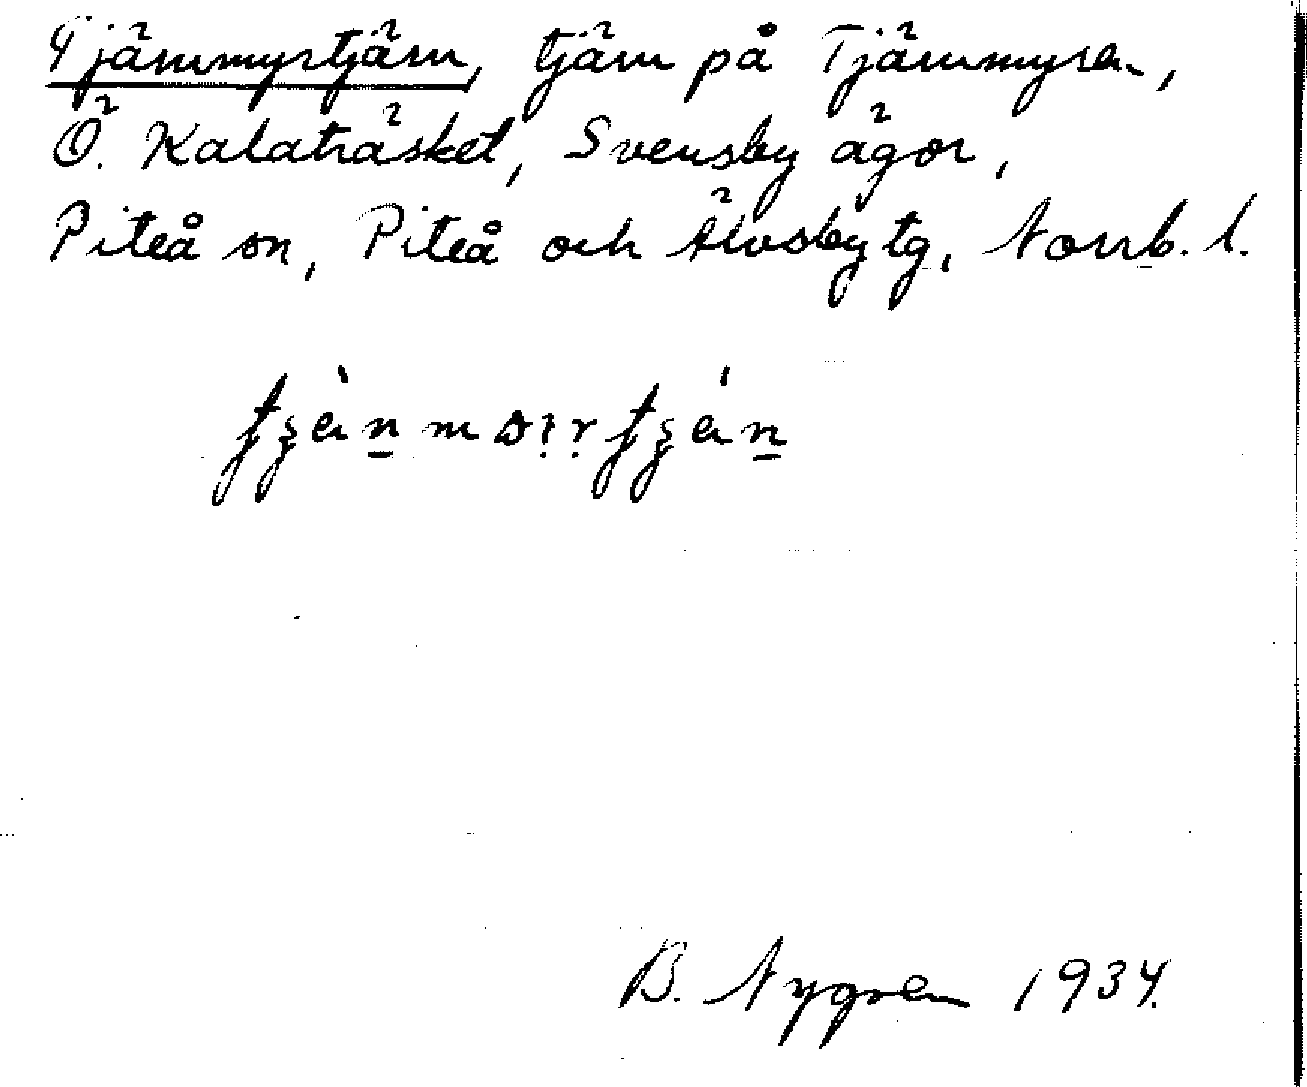 Tjärnmyrtjärn, tjärn på Tjärnmyren,
Ö. Kalaträsket, Svensby ägor,
Piteå sn, Piteå och Älvsby tg, Norrb. l.
B. Nygren 1934.